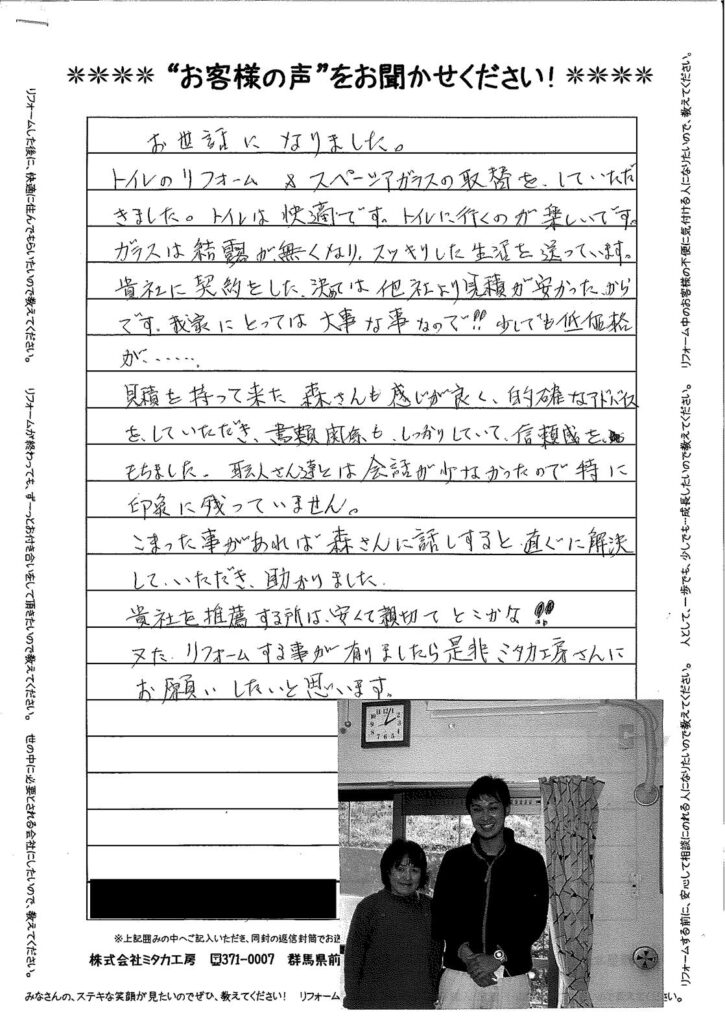 ＊＊＊＊ “お客様の声”をお聞かせください！ ＊＊＊＊
お世話に なりました。
トイレのリフォーム & スペーシアガラスの取替を、していただ
きました。トイレは快適です。トイレに行くのが楽しいです。
ガラスは結露が無くなり、スッキリした生活を送っています。
貴社に契約をした、決めては他社より見積が安かったから
です。我家にとっては大事な事なので!! 少しでも低価格
が‥‥‥
見積を持って来た森さんも感じが良く、的確なアドバイス
を、していただき、書類関係も、しっかりしていて、信頼感を、
もちました。職人さん達とは会話が少なかったので特に
印象に残っていません。
こまった事があれば森さんに話しすると、直ぐに解決
して、いただき、助かりました。
貴社を推薦する所は、安くて親切てとこかな!!
又た、リフォームする事が有りましたら是非ミタカ工房さんに
お願いしたいと思います。
※上記囲みの中へご記入いただき、同封の返信封筒でお送
株式会社ミタカ工房 〒371-0007 群馬県前
みなさんの、ステキな笑顔が見たいのでぜひ、教えてください！ リフォーム
リフォームした後に、快適に住んでもらいたいので教えてください。 リフォームが終わっても、ずーっとお付き合いをして頂きたいので教えてください。 世の中に必要とされる会社にしたいので、教えてください。
リフォームする前に、安心して相談にのれる人になりたいので教えてください。 人として、一歩でも、少しでも…成長したいので教えてください。 リフォーム中のお客様の不便に気付ける人になりたいので、教えてください。